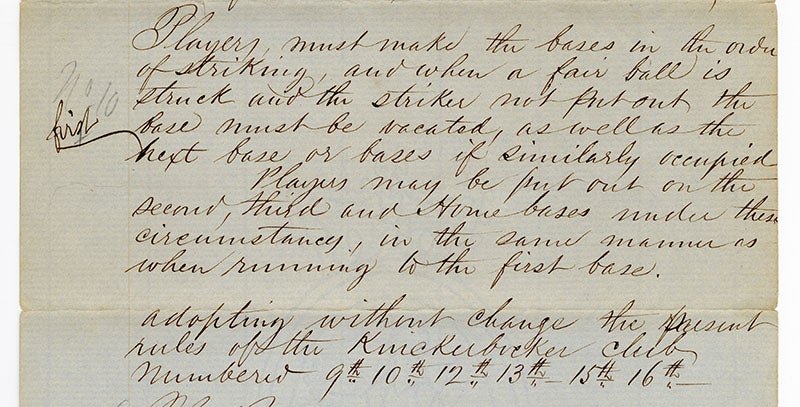 Players, must make the bases in the order
of striking, and when a fair ball is
No 10
struck and the striker not put out the
first
base must be vacated, as well as the
next base or bases if similarly occupied
Players may be put out on the
second, third and Home bases under these
circumstances, in the same manner as
when running to the first base.
adopting without change the present
rules of the Knickerbocker club
numbered 9th 10th 12th 13th 15th 16th